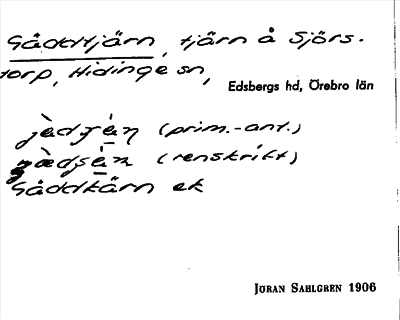 Gäddtjärn, tjärn å Sjörs-
torp, Hidinge sn,
Edsbergs hd, Örebro län
(prim.-ant.)
(renskrift)
Gäddkärn ek
JÖRAN SAHLGREN 1906